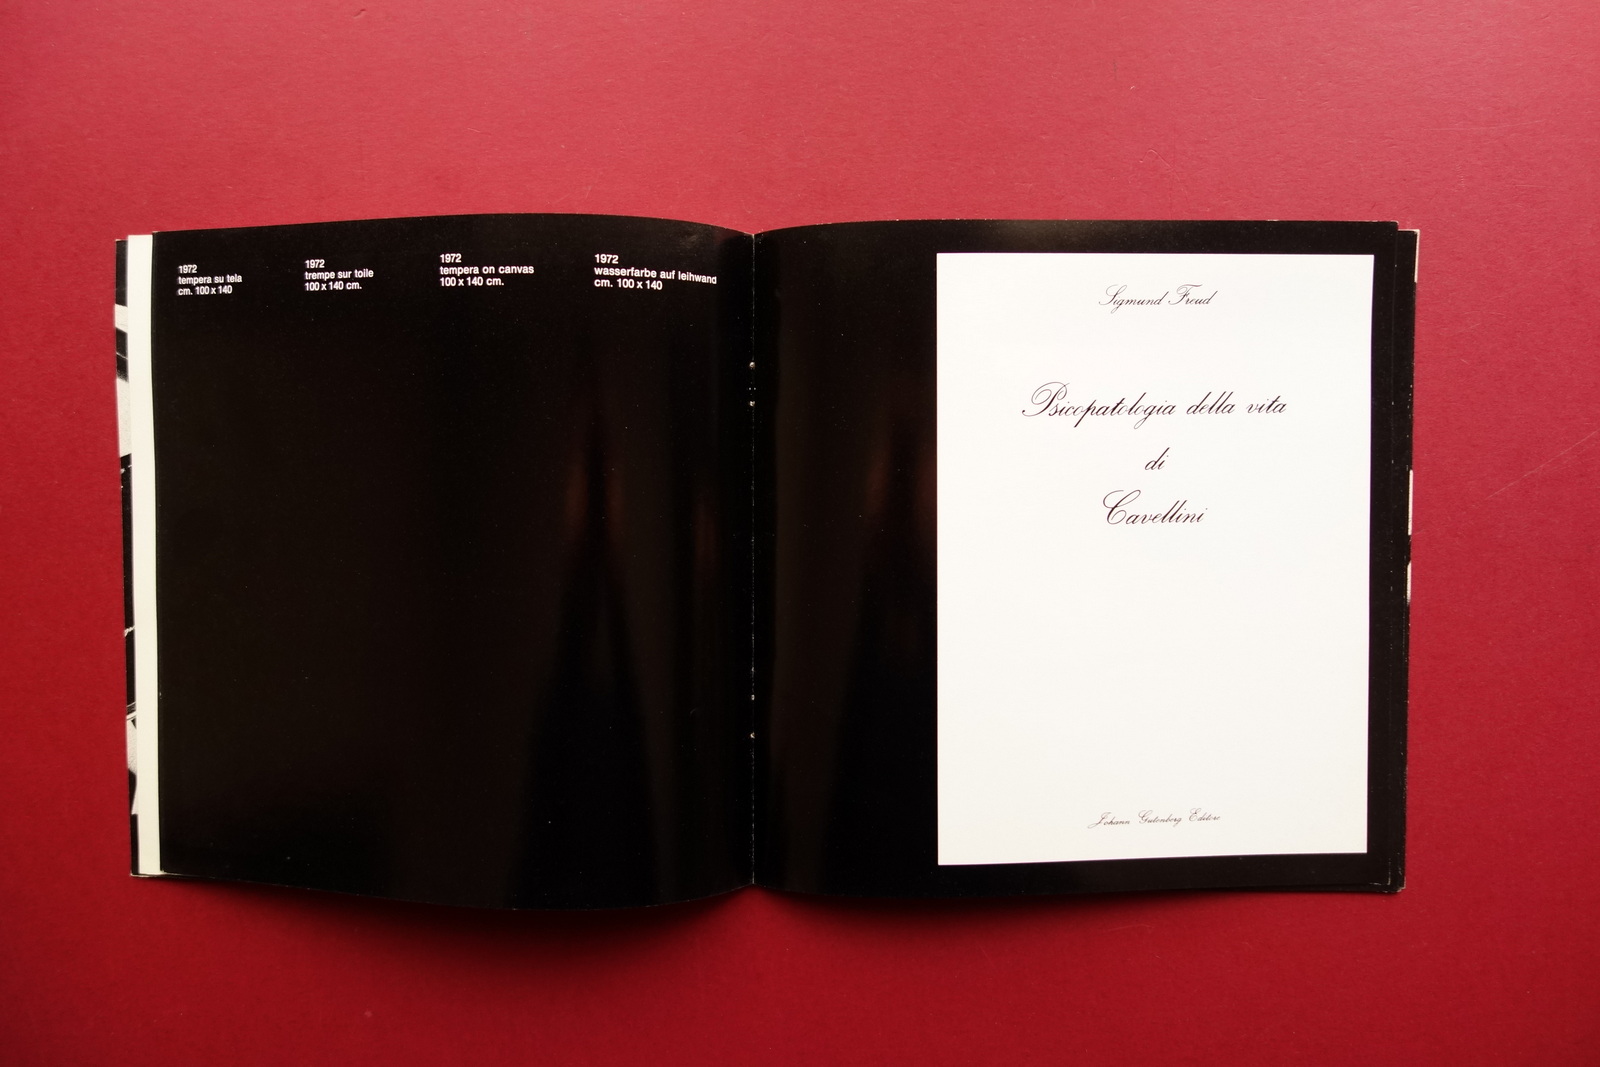 1972
tempera su tela
cm. 100 x 140
1972
trempe sur toile
100 x 140 cm.
1972
tempera on canvas
100 x 140 cm.
1972
wasserfarbe auf leihwand
cm. 100 x 140
Sigmund Freud
Psicopatologia della vita
di
Cavellini
Johann Gutenberg Editore